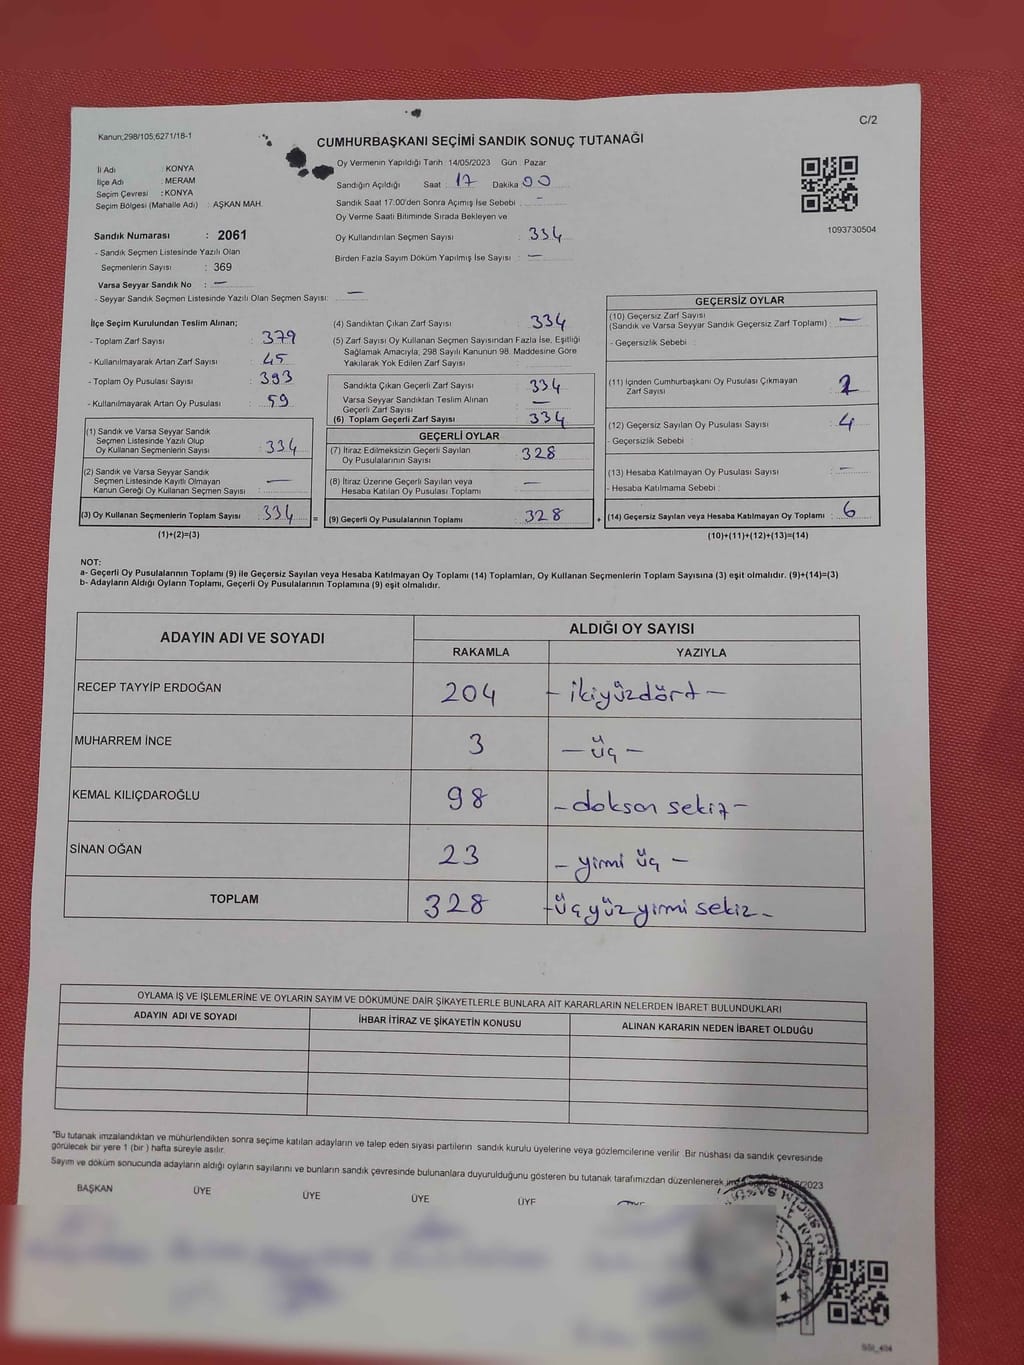 C/2
Kanun;298/105;6271/18-1
CUMHURBAŞKANI SEÇİMİ SANDIK SONUÇ TUTANAĞI
İl Adı : KONYA
İlçe Adı : MERAM
Seçim Çevresi : KONYA
Seçim Bölgesi (Mahalle Adı) : AŞKAN MAH.
Oy Vermenin Yapıldığı Tarih : 14/05/2023 Gün : Pazar
Sandığın Açıldığı Saat : 17 Dakika : 00
Sandık Saat 17:00'den Sonra Açılmış İse Sebebi : -
Oy Verme Saati Bitiminde Sırada Bekleyen ve
Oy Kullandırılan Seçmen Sayısı : 334
Birden Fazla Sayım Döküm Yapılmış İse Sayısı : —
1093730504
Sandık Numarası : 2061
- Sandık Seçmen Listesinde Yazılı Olan
Seçmenlerin Sayısı : 369
Varsa Seyyar Sandık No : —
- Seyyar Sandık Seçmen Listesinde Yazılı Olan Seçmen Sayısı: —
İlçe Seçim Kurulundan Teslim Alınan;
- Toplam Zarf Sayısı : 379
- Kullanılmayarak Artan Zarf Sayısı : 45
- Toplam Oy Pusulası Sayısı : 393
- Kullanılmayarak Artan Oy Pusulası : 59
(1) Sandık ve Varsa Seyyar Sandık
Seçmen Listesinde Yazılı Olup
Oy Kullanan Seçmenlerin Sayısı : 334
(2) Sandık ve Varsa Seyyar Sandık
Seçmen Listesinde Kayıtlı Olmayan
Kanun Gereği Oy Kullanan Seçmen Sayısı : —
(3) Oy Kullanan Seçmenlerin Toplam Sayısı : 334 =
(1)+(2)=(3)
(4) Sandıktan Çıkan Zarf Sayısı : 334
(5) Zarf Sayısı Oy Kullanan Seçmen Sayısından Fazla İse, Eşitliği
Sağlamak Amacıyla, 298 Sayılı Kanunun 98. Maddesine Göre
Yakılarak Yok Edilen Zarf Sayısı :
Sandıkta Çıkan Geçerli Zarf Sayısı : 334
Varsa Seyyar Sandıktan Teslim Alınan
Geçerli Zarf Sayısı : —
(6) Toplam Geçerli Zarf Sayısı : 334
GEÇERLİ OYLAR
(7) İtiraz Edilmeksizin Geçerli Sayılan
Oy Pusulalarının Sayısı : 328
(8) İtiraz Üzerine Geçerli Sayılan veya
Hesaba Katılan Oy Pusulası Toplamı : —
(9) Geçerli Oy Pusulalarının Toplamı : 328 +
GEÇERSİZ OYLAR
(10) Geçersiz Zarf Sayısı
(Sandık ve Varsa Seyyar Sandık Geçersiz Zarf Toplamı) : —
- Geçersizlik Sebebi :
(11) İçinden Cumhurbaşkanı Oy Pusulası Çıkmayan
Zarf Sayısı : 2
(12) Geçersiz Sayılan Oy Pusulası Sayısı : 4
- Geçersizlik Sebebi :
(13) Hesaba Katılmayan Oy Pusulası Sayısı : —
- Hesaba Katılmama Sebebi :
(14) Geçersiz Sayılan veya Hesaba Katılmayan Oy Toplamı : 6
(10)+(11)+(12)+(13)=(14)
NOT:
a- Geçerli Oy Pusulalarının Toplamı (9) ile Geçersiz Sayılan veya Hesaba Katılmayan Oy Toplamı (14) Toplamları, Oy Kullanan Seçmenlerin Toplam Sayısına (3) eşit olmalıdır. (9)+(14)=(3)
b- Adayların Aldığı Oyların Toplamı, Geçerli Oy Pusulalarının Toplamına (9) eşit olmalıdır.
ADAYIN ADI VE SOYADI ALDIĞI OY SAYISI
RAKAMLA YAZIYLA
RECEP TAYYİP ERDOĞAN 204 - ikiyüzdört -
MUHARREM İNCE 3 - üç -
KEMAL KILIÇDAROĞLU 98 - doksan sekiz -
SİNAN OĞAN 23 - yirmi üç -
TOPLAM 328 - üçyüzyirmi sekiz -
OYLAMA İŞ VE İŞLEMLERİNE VE OYLARIN SAYIM VE DÖKÜMÜNE DAİR ŞİKAYETLERLE BUNLARA AİT KARARLARIN NELERDEN İBARET BULUNDUKLARI
ADAYIN ADI VE SOYADI İHBAR İTİRAZ VE ŞİKAYETİN KONUSU ALINAN KARARIN NEDEN İBARET OLDUĞU
*Bu tutanak imzalandıktan ve mühürlendikten sonra seçime katılan adayların ve talep eden siyasi partilerin sandık kurulu üyelerine veya gözlemcilerine verilir. Bir nüshası da sandık çevresinde
görülecek bir yere 1 (bir) hafta süreyle asılır.
Sayım ve döküm sonucunda adayların aldığı oyların sayılarını ve bunların sandık çevresinde bulunanlara duyurulduğunu gösteren bu tutanak tarafımızdan düzenlenerek /2023
BAŞKAN ÜYE ÜYE ÜYE ÜYE